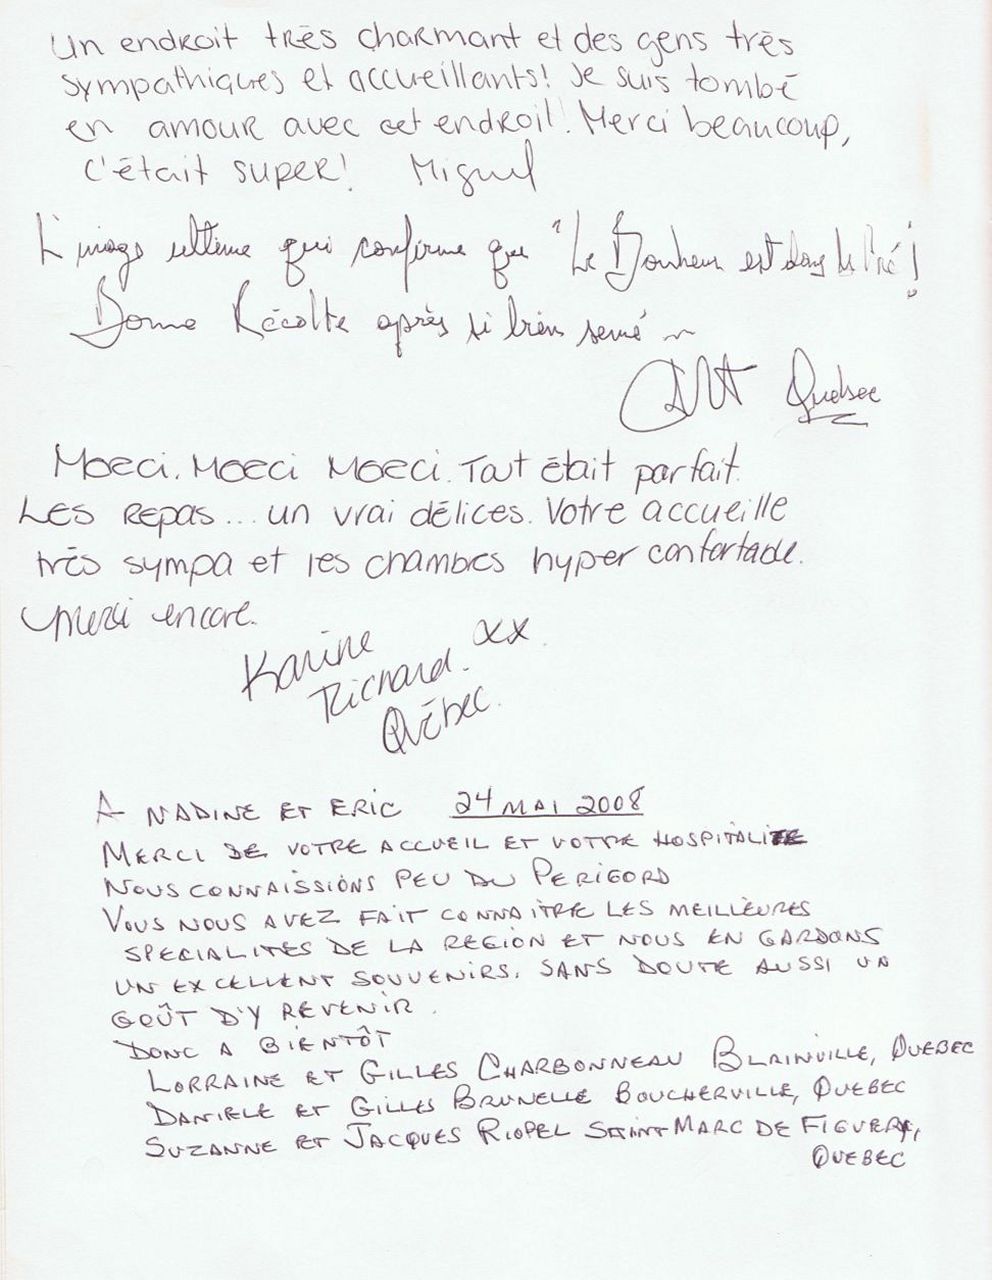 Un endroit très charmant et des gens très
sympathiques et accueillants! Je suis tombé
en amour avec cet endroit! Merci beaucoup,
c'était super! Miguel
L'image ultime qui confirme que "Le Bonheur est dans le Pré!
Bonne Récolte après si bien semé ~
Québec
Merci. Merci Merci. Tout était parfait.
Les repas... un vrai délices. Votre accueille
très sympa et les chambres hyper confortable.
Merci encore.
Karine xx
Richard.
Québec.
A NADINE ET ERIC 24 MAI 2008
MERCI DE VOTRE ACCUEIL ET VOTRE HOSPITALITE
NOUS CONNAISSIONS PEU DU PERIGORD
VOUS NOUS AVEZ FAIT CONNAITRE LES MEILLEURES
SPECIALITES DE LA REGION ET NOUS EN GARDONS
UN EXCELLENT SOUVENIRS. SANS DOUTE AUSSI UN
GOÛT D'Y REVENIR.
DONC A BIENTÔT
LORRAINE ET GILLES CHARBONNEAU BLAINVILLE, QUEBEC
DANIELE ET GILLES BRUNELLE BOUCHERVILLE, QUEBEC
SUZANNE ET JACQUES RIOPEL SAINT MARC DE FIGUERY,
QUEBEC